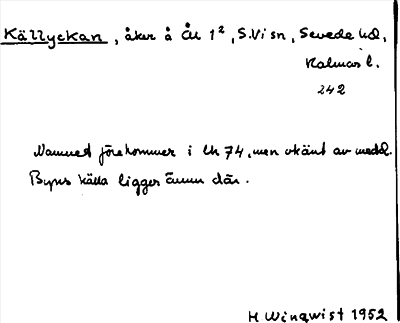 Källyckan, åker å Ål 1², S.Vi sn, Sevede hd,
Kalmar l.
242
Namnet förekommer i Lh 74, men okänt av medd.
Byns källa ligger ännu där.
H Winqwist 1952